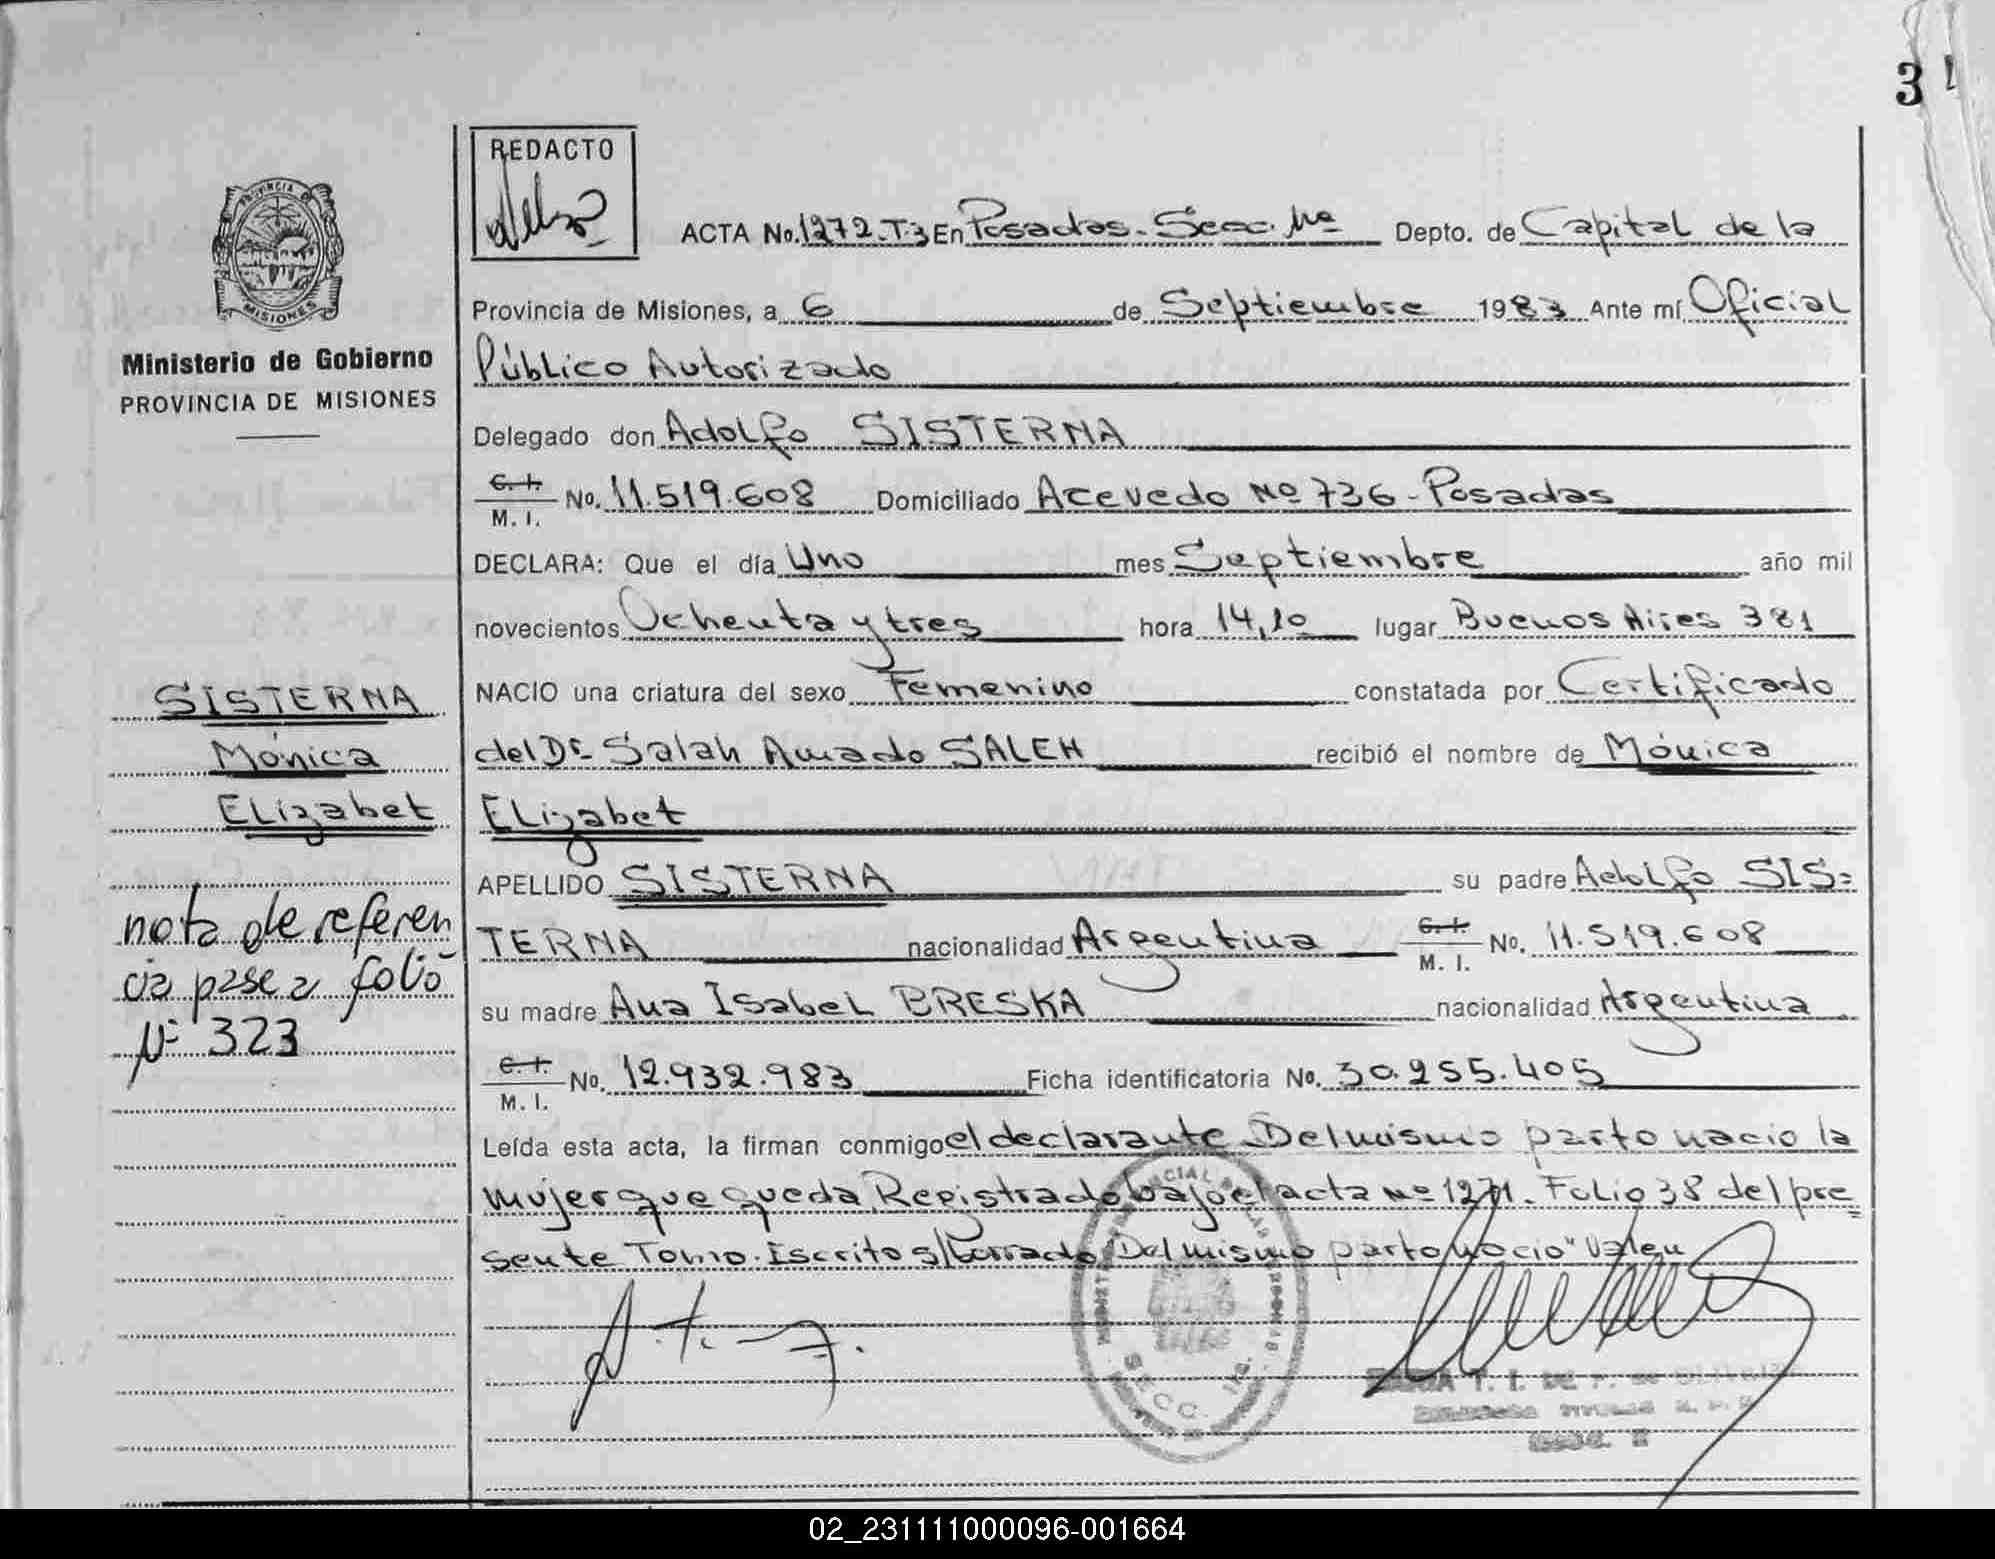 3
REDACTO
PROVINCIA DE
MISIONES
Ministerio de Gobierno
PROVINCIA DE MISIONES
ACTA No. 1272.T.3 En Posadas - Secc. 1ra Depto. de Capital de la
Provincia de Misiones, a 6 de Septiembre 1983 Ante mí Oficial
Público Autorizado
Delegado don Adolfo SISTERNA
C. I.
M. I. No. 11.519.608 Domiciliado Acevedo No 736 - Posadas
DECLARA: Que el día Uno mes Septiembre año mil
novecientos Ochenta y tres hora 14,10 lugar Buenos Aires 381
NACIO una criatura del sexo Femenino constatada por Certificado
del Dr. Salah Amado SALEH recibió el nombre de Mónica
Elizabet
APELLIDO SISTERNA su padre Adolfo SIS=
TERNA nacionalidad Argentina C. I.
M. I. No. 11.519.608
su madre Ana Isabel BRESKA nacionalidad Argentina
C. I.
M. I. No. 12.932.983 Ficha identificatoria No. 30.255.405
Leída esta acta, la firman conmigo el declarante Del mismo parto nacio la
mujer que queda Registrado bajo el acta No 1271. Folio 38 del pre=
sente Tomo. Escrito s/borrado "Del mismo parto nacio" Valen
SISTERNA
Mónica
Elizabet
nota de referen
cia pase a folio
No 323
SECC.
02_231111000096-001664